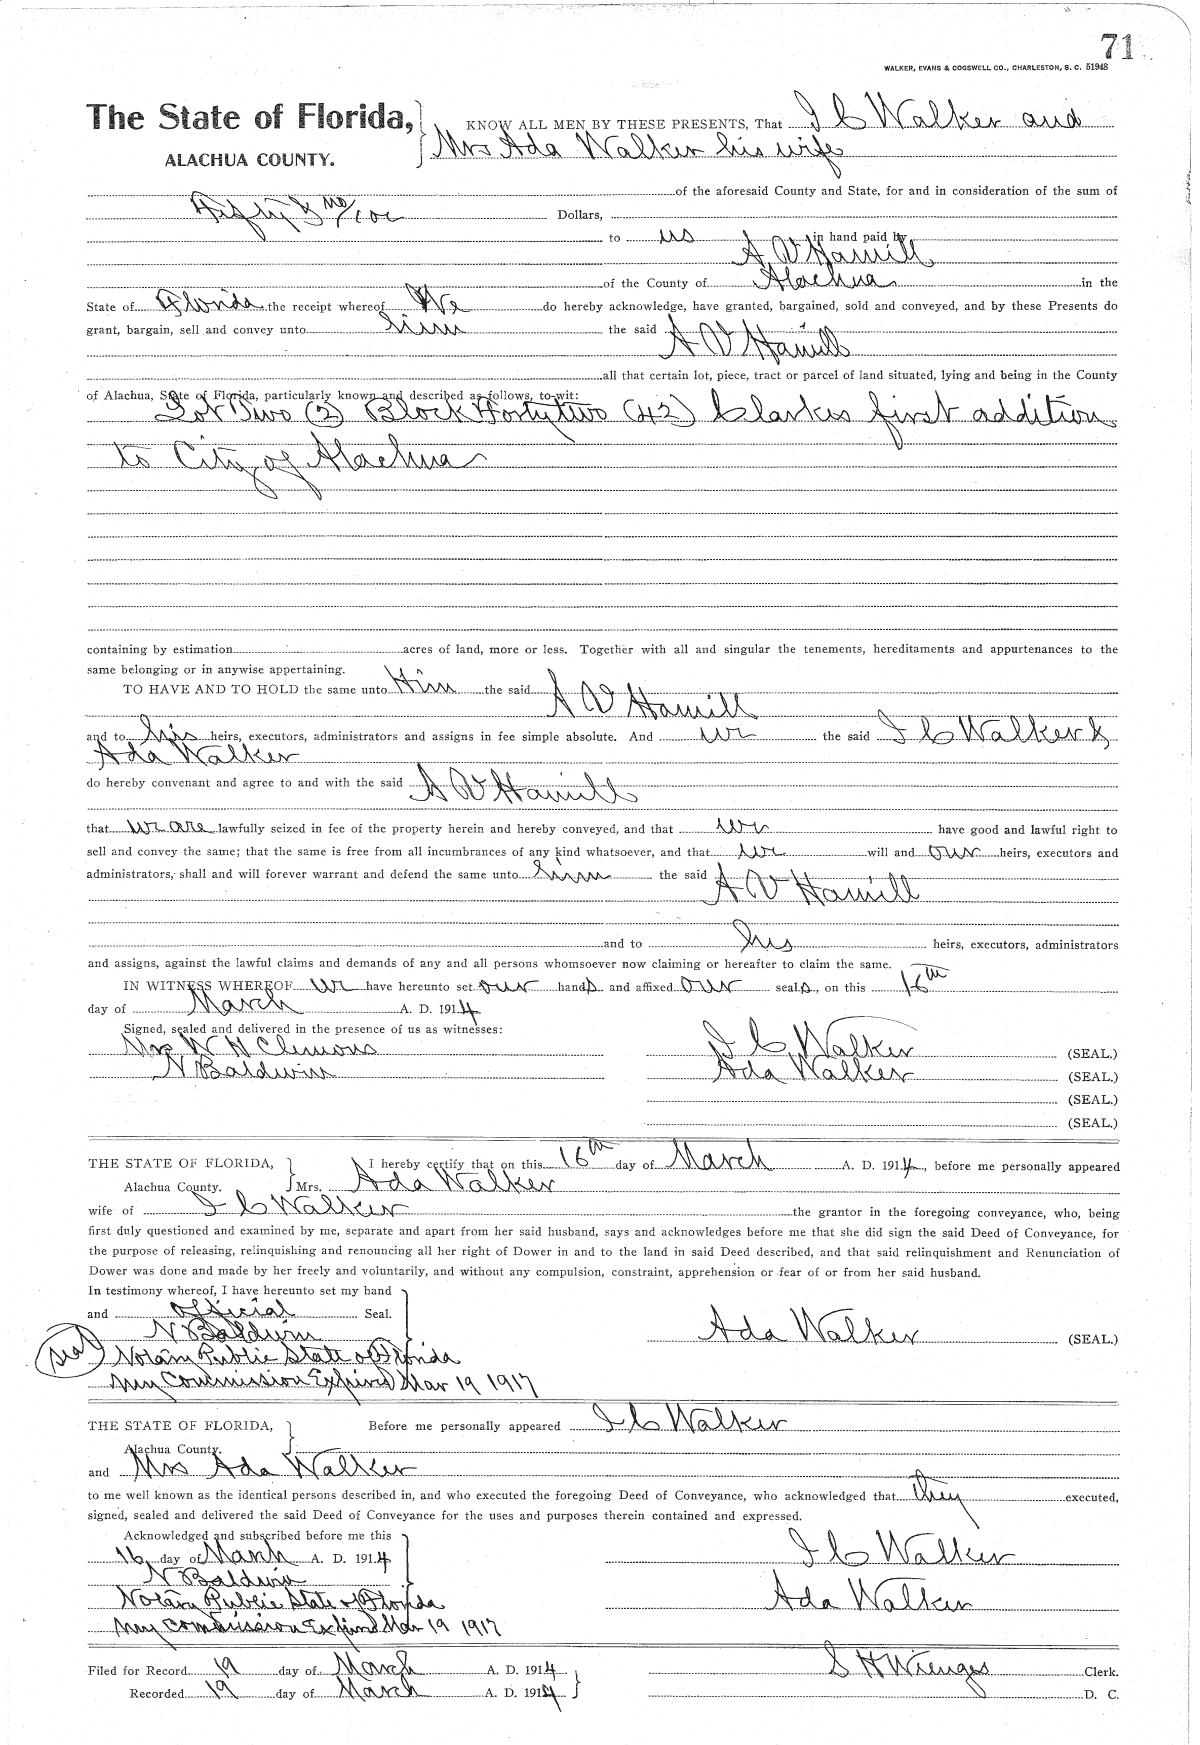 71
WALKER, EVANS & COGSWELL CO., CHARLESTON, S. C. 51948
The State of Florida, KNOW ALL MEN BY THESE PRESENTS, That I C Walker and
ALACHUA COUNTY. Mrs Ada Walker his wife
of the aforesaid County and State, for and in consideration of the sum of
Fifty & no/100 Dollars,
to us in hand paid by
A V Hamill
of the County of Alachua in the
State of Florida the receipt whereof We do hereby acknowledge, have granted, bargained, sold and conveyed, and by these Presents do
grant, bargain, sell and convey unto him the said
A V Hamill
all that certain lot, piece, tract or parcel of land situated, lying and being in the County
of Alachua, State of Florida, particularly known and described as follows, to-wit:
Lot Two (2) Block Forty two (42) Clarkes first addition
to City of Alachua
containing by estimation acres of land, more or less. Together with all and singular the tenements, hereditaments and appurtenances to the
same belonging or in anywise appertaining.
TO HAVE AND TO HOLD the same unto Him the said
A V Hamill
and to his heirs, executors, administrators and assigns in fee simple absolute. And we the said I C Walker &
Ada Walker
do hereby convenant and agree to and with the said A V Hamill
that we are lawfully seized in fee of the property herein and hereby conveyed, and that we have good and lawful right to
sell and convey the same; that the same is free from all incumbrances of any kind whatsoever, and that we will and our heirs, executors and
administrators, shall and will forever warrant and defend the same unto him the said
A V Hamill
and to his heirs, executors, administrators
and assigns, against the lawful claims and demands of any and all persons whomsoever now claiming or hereafter to claim the same.
IN WITNESS WHEREOF we have hereunto set our hands and affixed our seals, on this 16th
day of March A. D. 1914
Signed, sealed and delivered in the presence of us as witnesses:
Mrs W H Clemons I C Walker (SEAL.)
N Baldwin Ada Walker (SEAL.)
(SEAL.)
(SEAL.)
THE STATE OF FLORIDA, I hereby certify that on this 16th day of March A. D. 1914, before me personally appeared
Alachua County. Mrs. Ada Walker
wife of I C Walker the grantor in the foregoing conveyance, who, being
first duly questioned and examined by me, separate and apart from her said husband, says and acknowledges before me that she did sign the said Deed of Conveyance, for
the purpose of releasing, relinquishing and renouncing all her right of Dower in and to the land in said Deed described, and that said relinquishment and Renunciation of
Dower was done and made by her freely and voluntarily, and without any compulsion, constraint, apprehension or fear of or from her said husband.
In testimony whereof, I have hereunto set my hand
and official Seal.
N Baldwin Ada Walker (SEAL.)
(seal) Notary Public State of Florida
My Commission Expires Mar 19 1917
THE STATE OF FLORIDA, Before me personally appeared I C Walker
Alachua County.
and Mrs Ada Walker
to me well known as the identical persons described in, and who executed the foregoing Deed of Conveyance, who acknowledged that they executed,
signed, sealed and delivered the said Deed of Conveyance for the uses and purposes therein contained and expressed.
Acknowledged and subscribed before me this
16 day of March A. D. 1914 I C Walker
N Baldwin
Notary Public State of Florida Ada Walker
My Commission Expires Mar 19 1917
Filed for Record 19 day of March A. D. 1914 S H Wienges Clerk.
Recorded 19 day of March A. D. 1914 D. C.